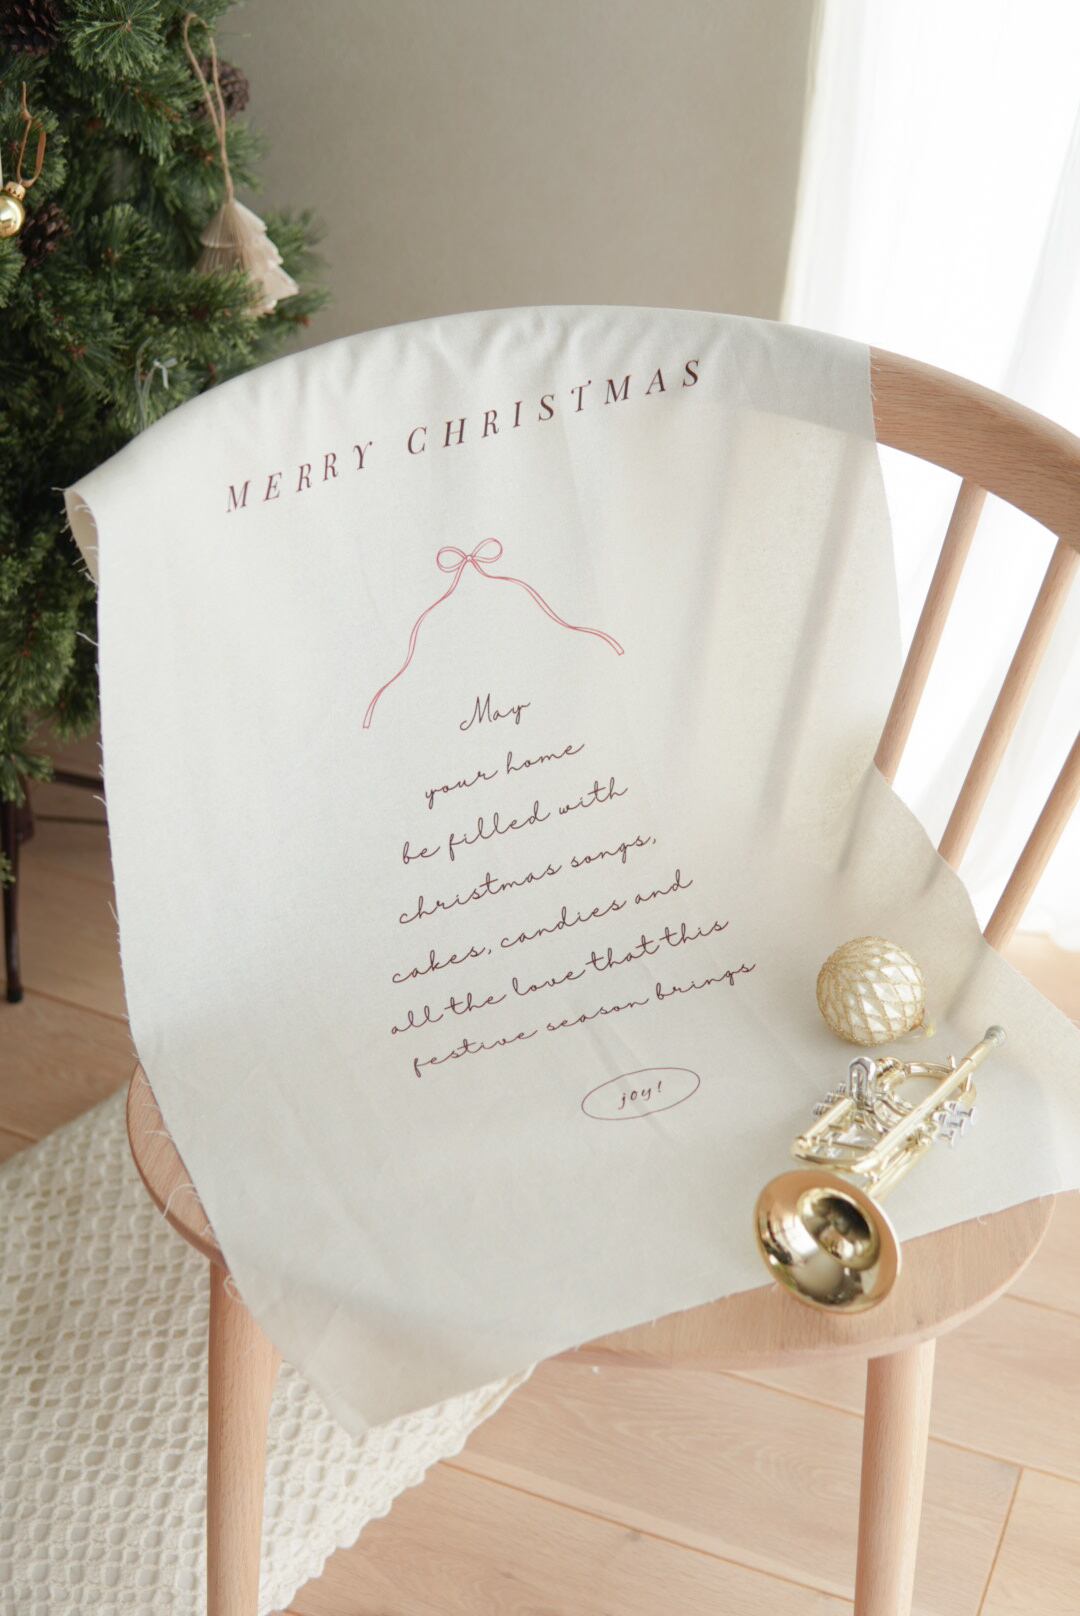 MERRY CHRISTMAS
May
your home
be filled with
christmas songs,
cakes, candies and
all the love that this
festive season brings
joy!